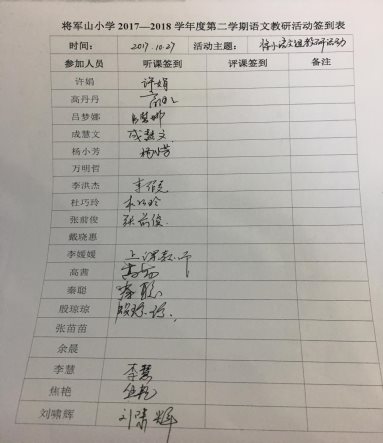 将军山小学2017—2018学年度第二学期语文教研活动签到表
时间： 2017.10.27 活动主题：
参加人员 听课签到 评课签到 备注
许娟 许娟
高丹丹
吕梦娜 吕梦娜
成慧文 成慧文
杨小芳 杨小芳
万明哲
李洪杰
杜巧玲 杜巧玲
张前俊 张前俊
戴晓惠
李媛媛 上课教师
高茜 高茜
秦聪 秦聪
殷琼琼
张苗苗
余晨
李慧 李慧
焦艳 焦艳
刘啸辉 刘啸辉